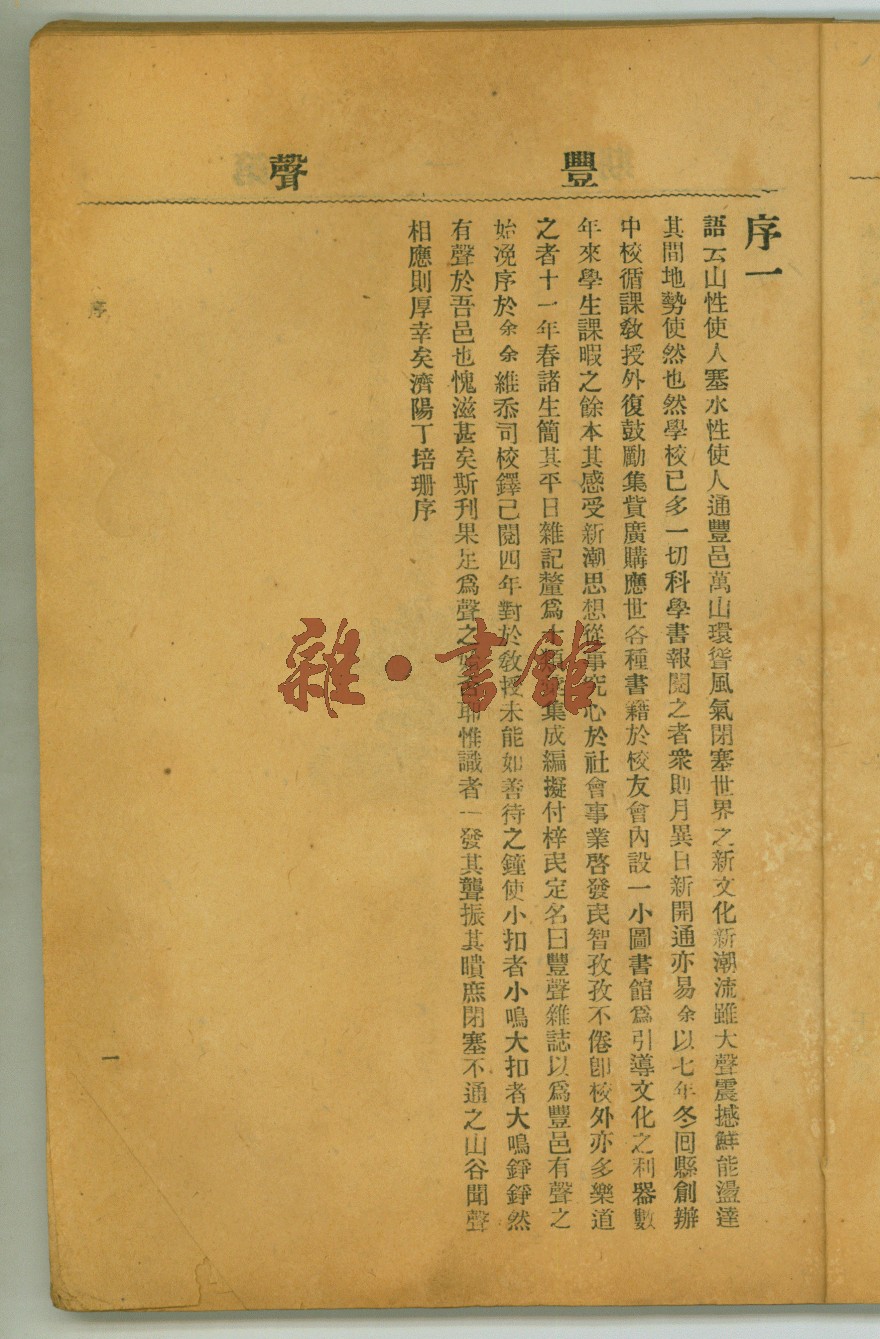 豐聲
序一
語云山性使人塞水性使人通豐邑萬山環聳風氣閉塞世界之新文化新潮流雖大聲震撼鮮能盪達
其間地勢使然也然學校已多一切科學書報閱之者衆則月異日新開通亦易余以七年冬囘縣創辦
中校循課敎授外復鼓勵集貲廣購應世各種書籍於校友會內設一小圖書館爲引導文化之利器數
年來學生課暇之餘本其感受新潮思想從事究心於社會事業啓發民智孜孜不倦卽校外亦多樂道
之者十一年春諸生簡其平日雜記釐爲集成編擬付梓民定名曰豐聲雜誌以爲豐邑有聲之
始浼序於余余維忝司校鐸已閱四年對於敎授未能如善待之鐘使小扣者小鳴大扣者大鳴錚錚然
有聲於吾邑也愧滋甚矣斯刋果足爲聲之耶惟識者一發其聾振其瞶庶閉塞不通之山谷聞聲
相應則厚幸矣濟陽丁培珊序
序
一
雜·書館